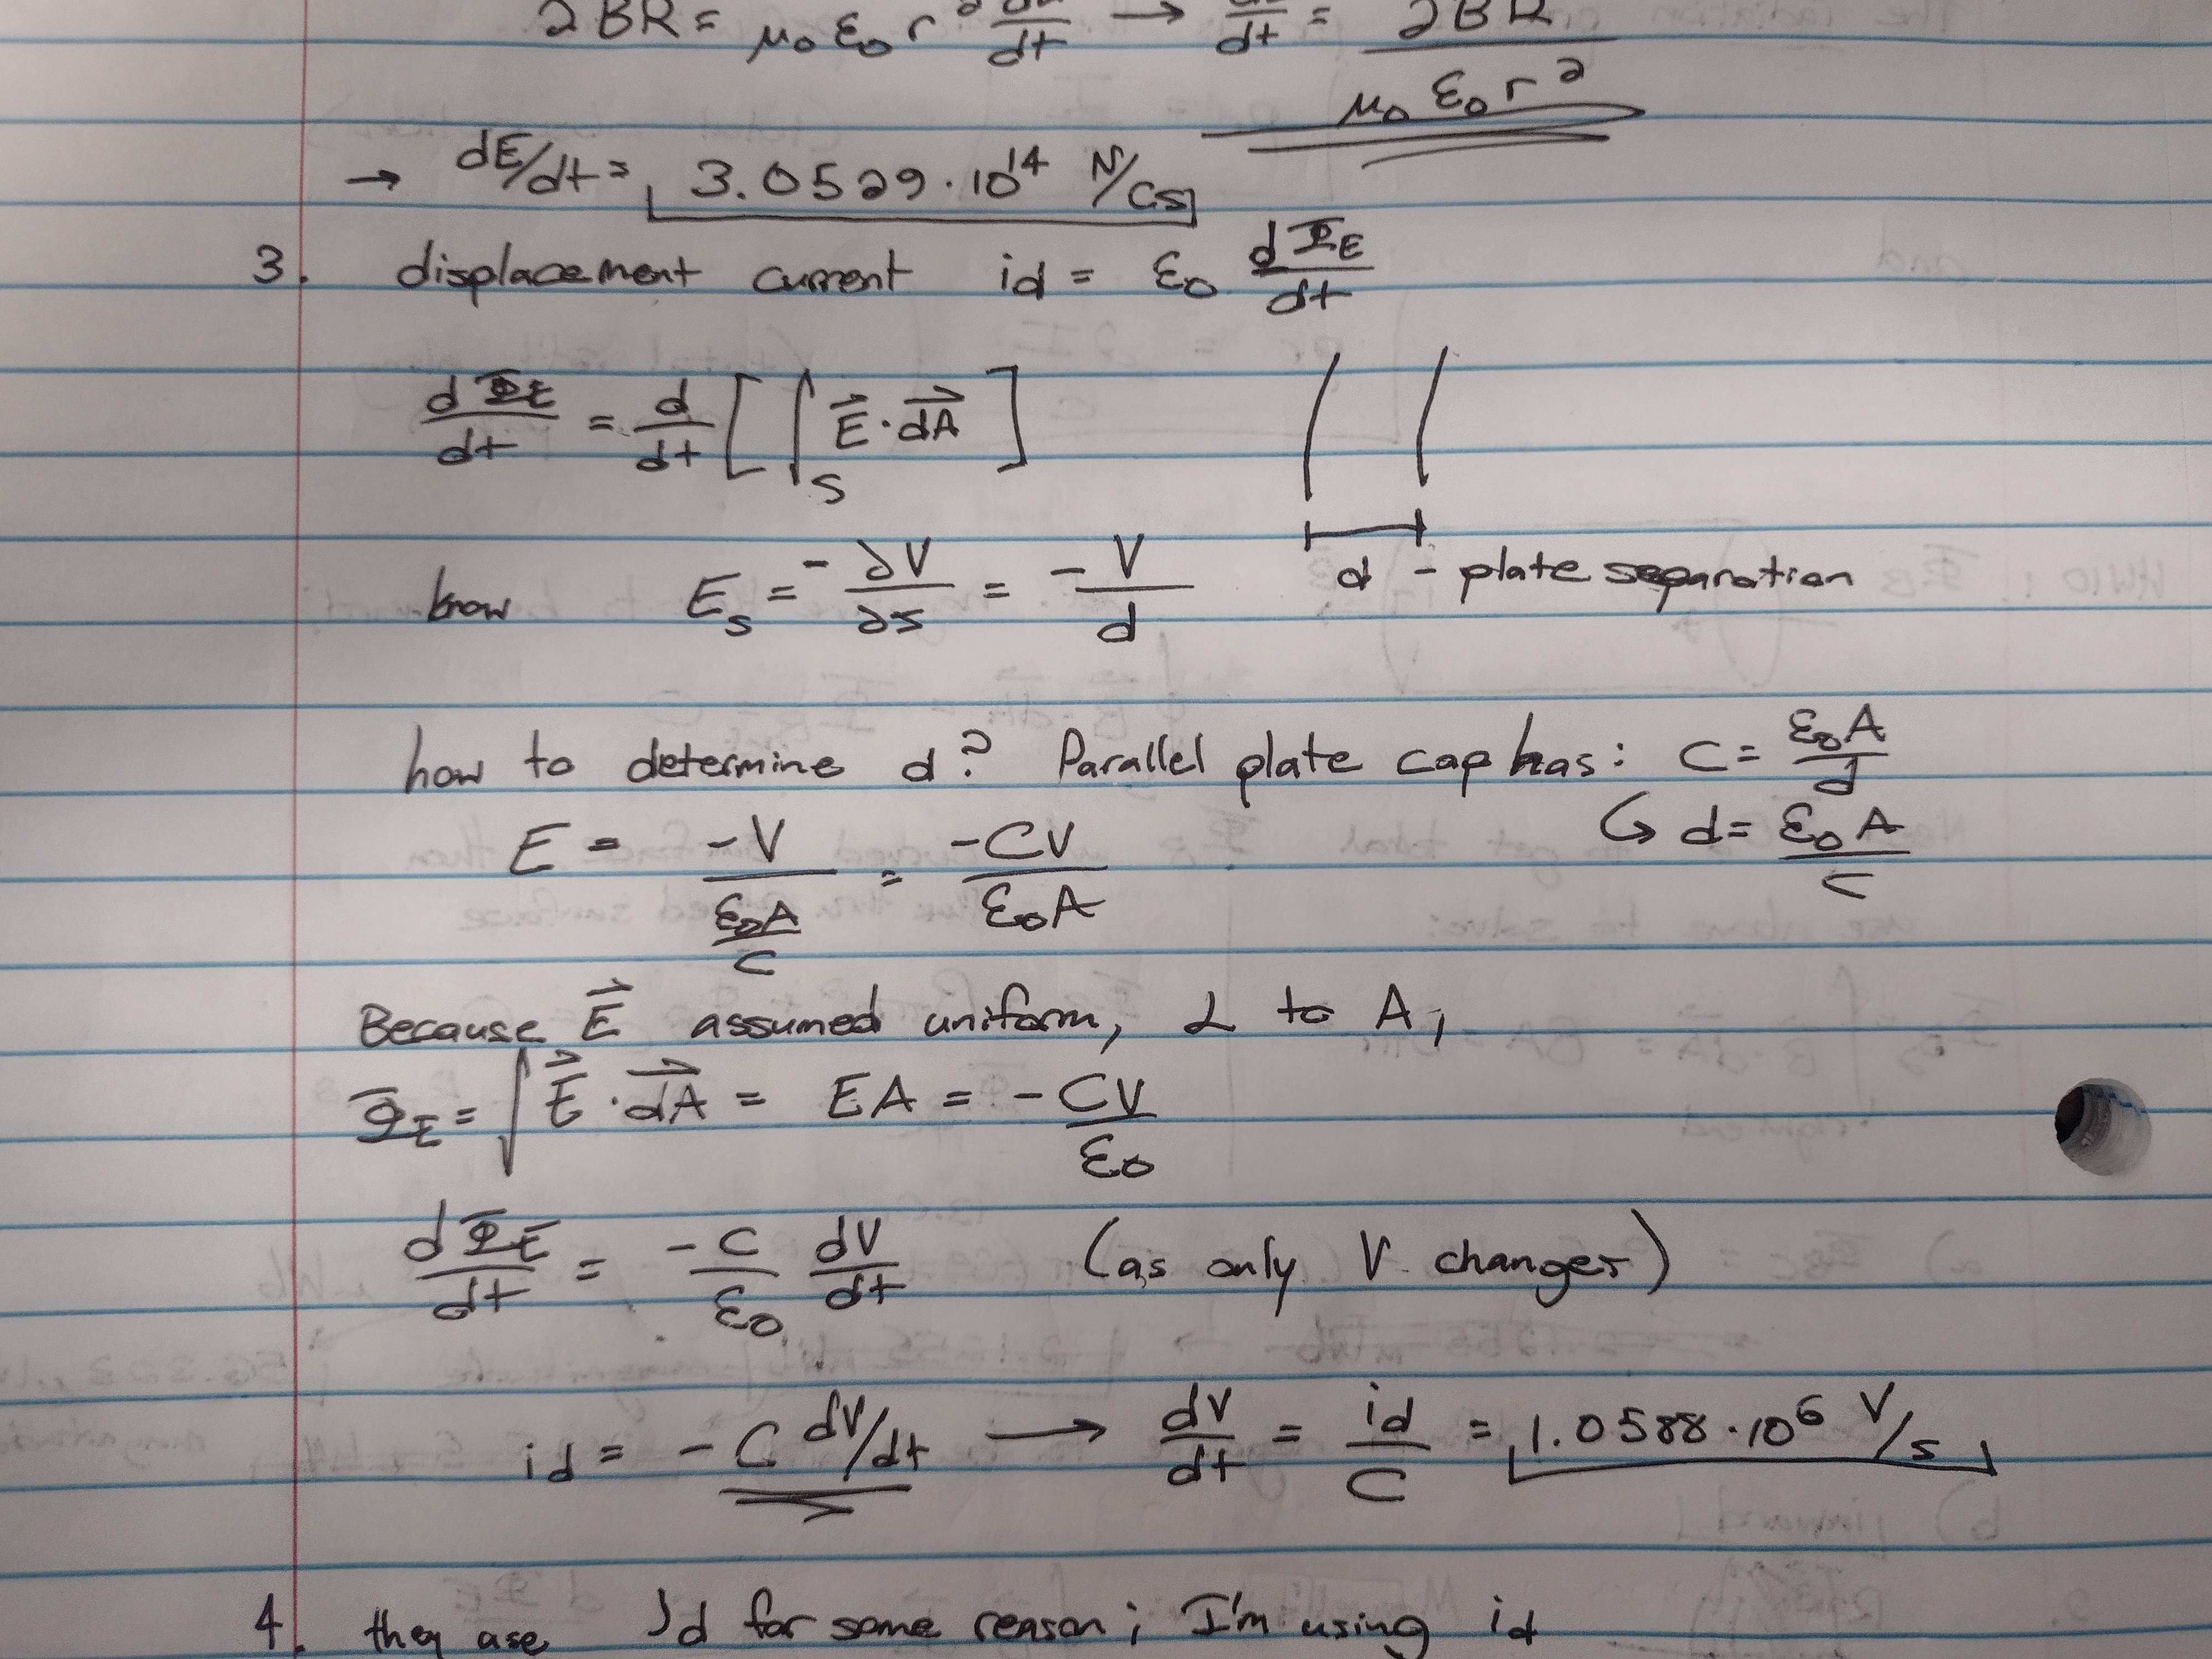 2BR = μ₀ ε₀ r² dE/dt → dE/dt = 2BR / μ₀ ε₀ r²
→ dE/dt = 3.0529·10¹⁴ N/Cs
3. displacement current id = ε₀ dΦE/dt
dΦE/dt = d/dt [∫S E⃗·dA⃗]
know Es = -∂V/∂s = -V/d
d - plate separation
how to determine d? Parallel plate cap has: C = ε₀A/d
↪ d = ε₀A/C
E = -V/(ε₀A/C) = -CV/ε₀A
Because E⃗ assumed uniform, ⊥ to A,
ΦE = ∫E⃗·dA⃗ = EA = -CV/ε₀
dΦE/dt = -C/ε₀ dV/dt (as only V changes)
id = -C dV/dt → dV/dt = id/C = 1.0588·10⁶ V/s
4. they use Id for some reason; I'm using id